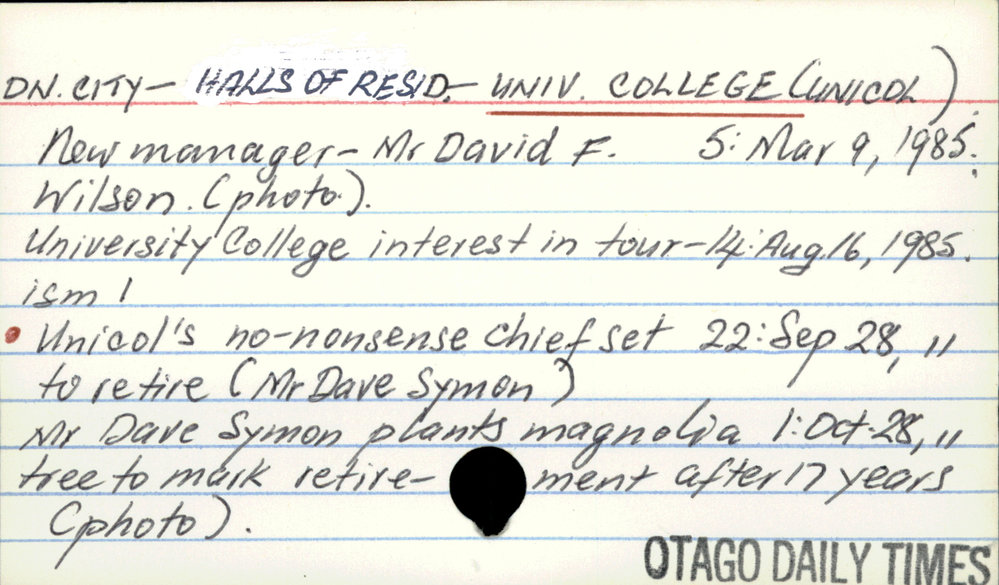 DN. CITY - HALLS OF RESID. - UNIV. COLLEGE (UNICOL).
New manager - Mr David F. 5: Mar 9, 1985.
Wilson. (photo).
University College interest in tour- 14: Aug. 16, 1985.
ism 1
• Unicol's no-nonsense chief set 22: Sep 28, "
to retire (Mr Dave Symon)
Mr Dave Symon plants magnolia 1: Oct. 28, "
tree to mark retire- ment after 17 years
(photo).
OTAGO DAILY TIMES